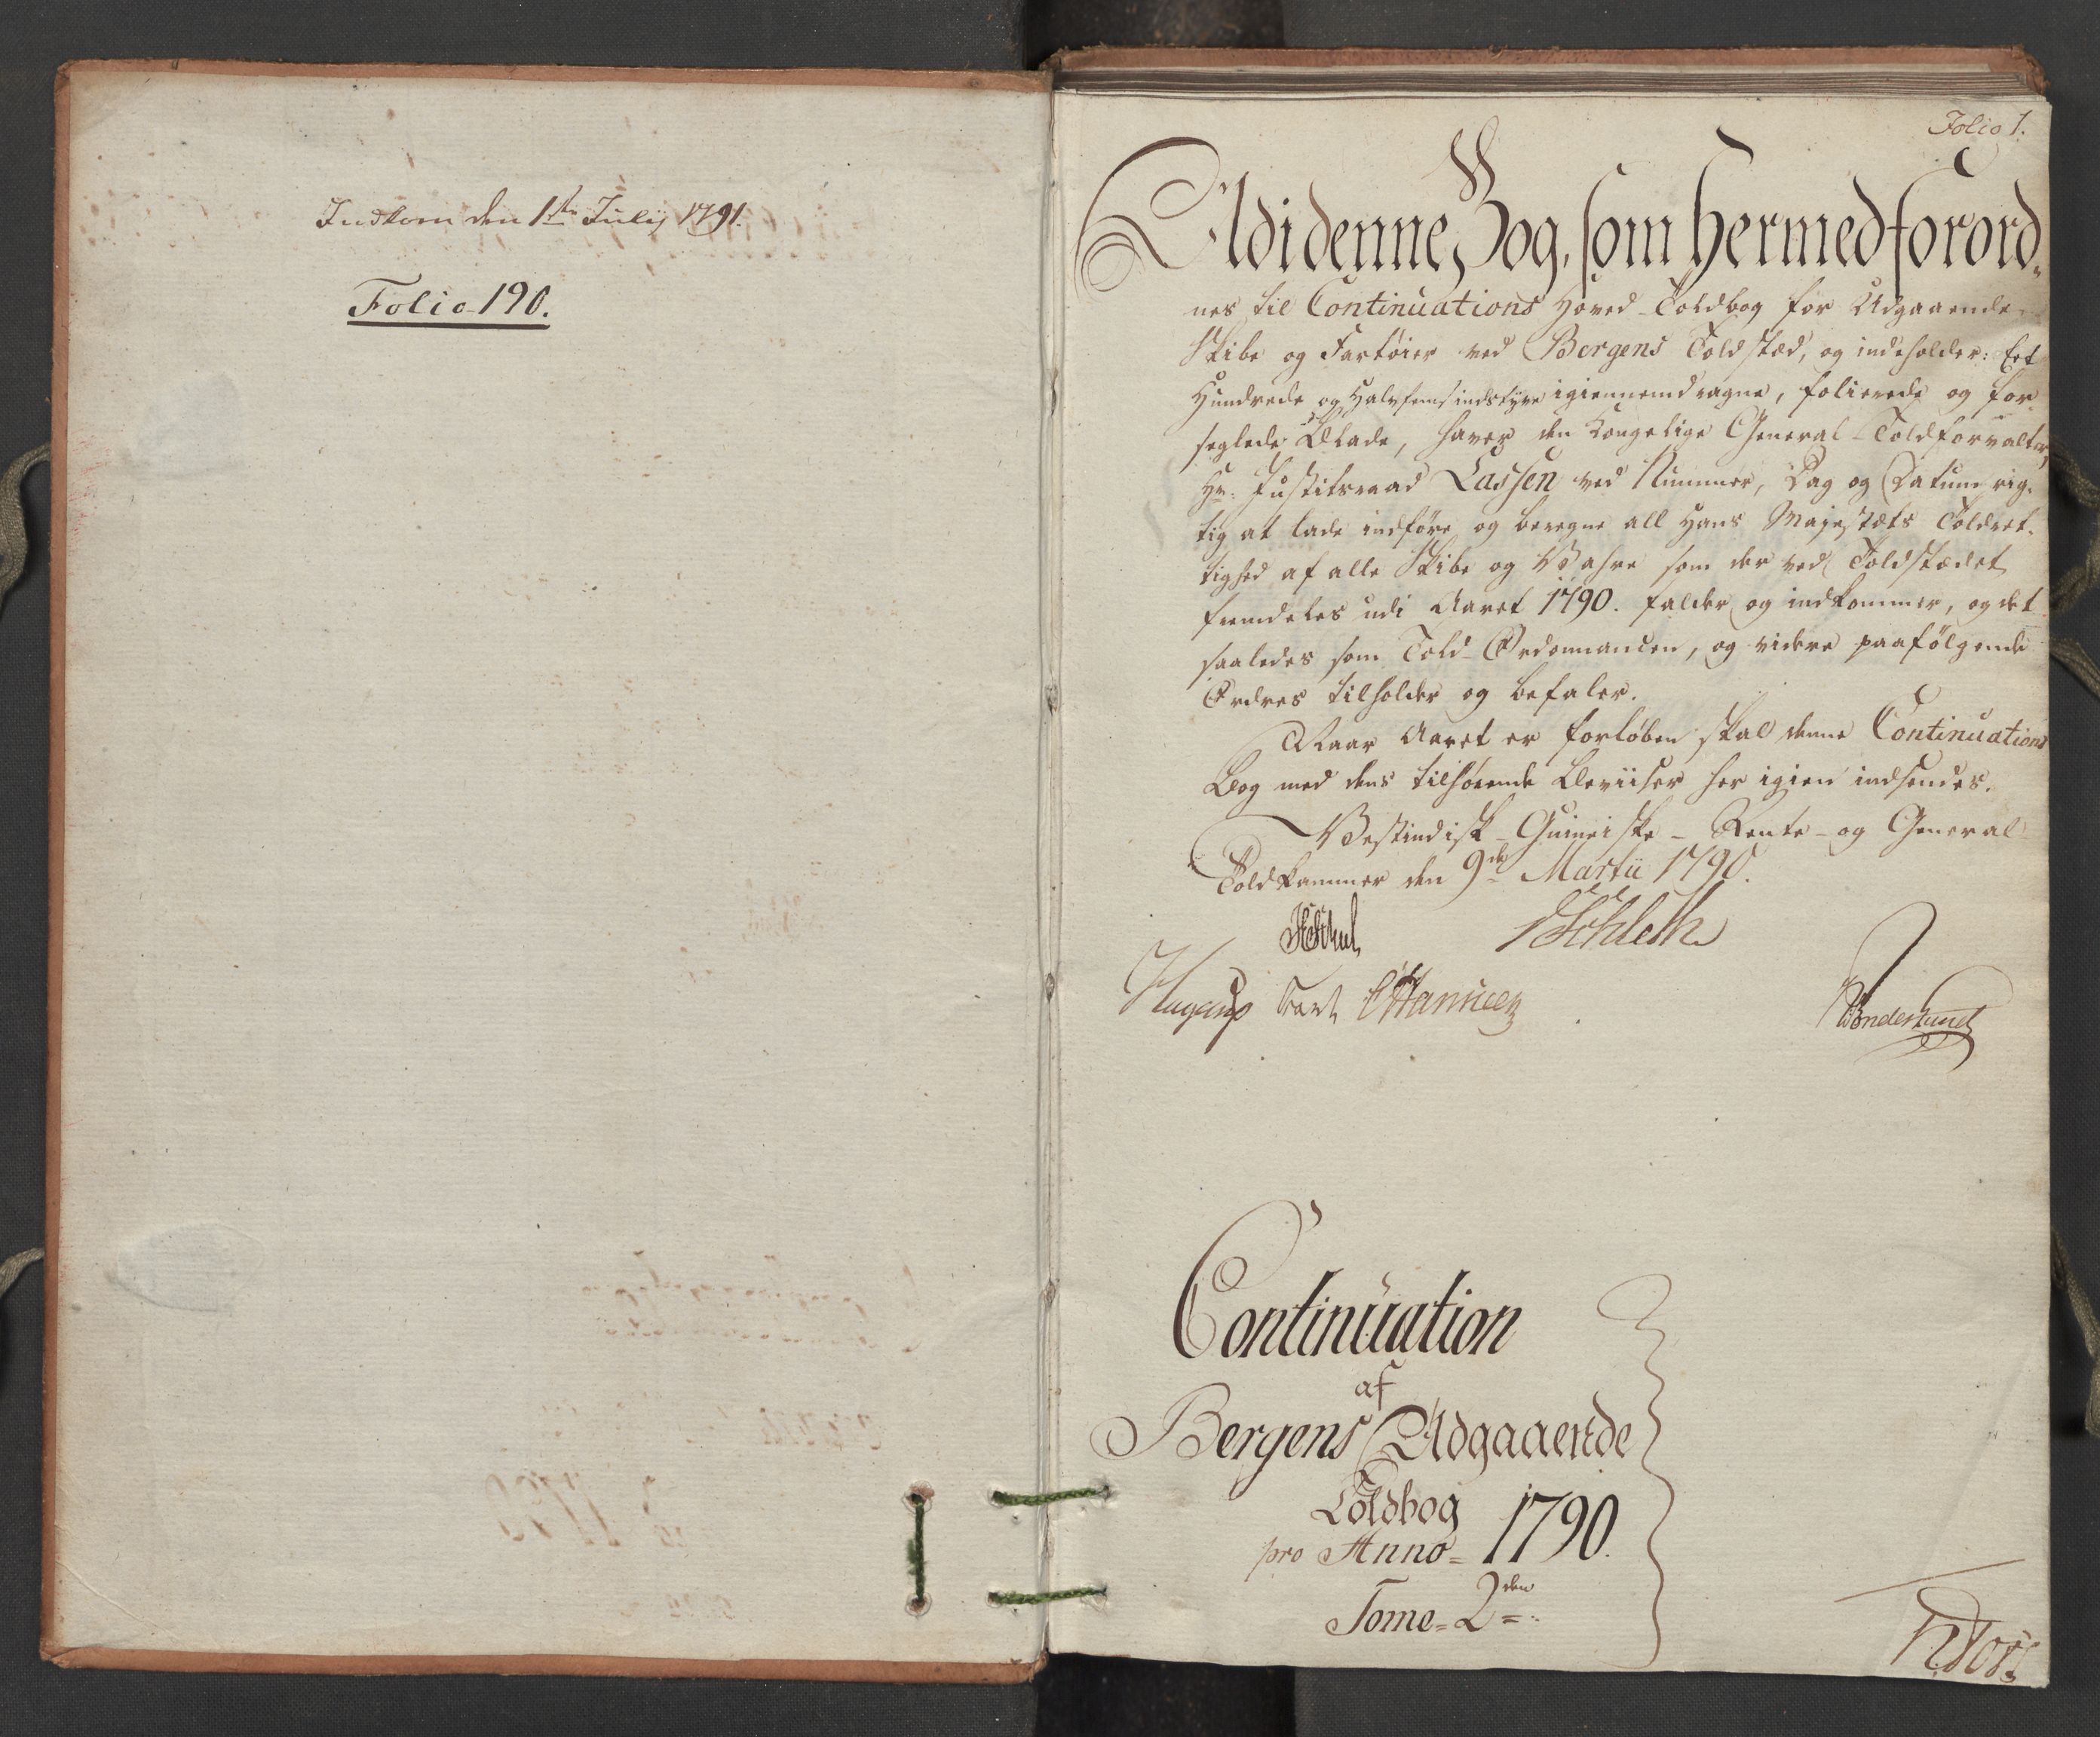 Indkom den 1ste Julij 1791.
Folio 190.
Folio 1.
Udi denne Bog, som hermed forord-
nes til Continuations Hoved-Toldbog for Udgaaende
Skibe og Fartøier ved Bergens Toldsted, og indeholder: Eet
Hundrede og Halvfemsindstyve igiennemdragne, folierede og for-
seglede Blade, haver den Kongelige General-Toldforvalter
Hr: Justitsraad Lassen ved Nummer, Dag og Datum rig-
tig at lade indføre og beregne all Hans Majestæts Toldret-
tighed af alle Skibe og Vahre som der ved Toldstædet
fremdeles udi Aaret 1790. falder og indkommer, og det
saaledes som Told-Ordonnancen, og videre paafølgende
Ordres tilholder og befaler.
Naar Aaret er forløben skal denne Continuations
Bog med dens tilhørende Beviiser her igien indsendes.
Vestindisk-Guineiske-Rente-og General-
Toldkammer den 9de Martii 1790.
Schleth
Hagerup
Continuation
af
Bergens Udgaaende
Toldbog
pro Anno = 1790.
Tome = 2den